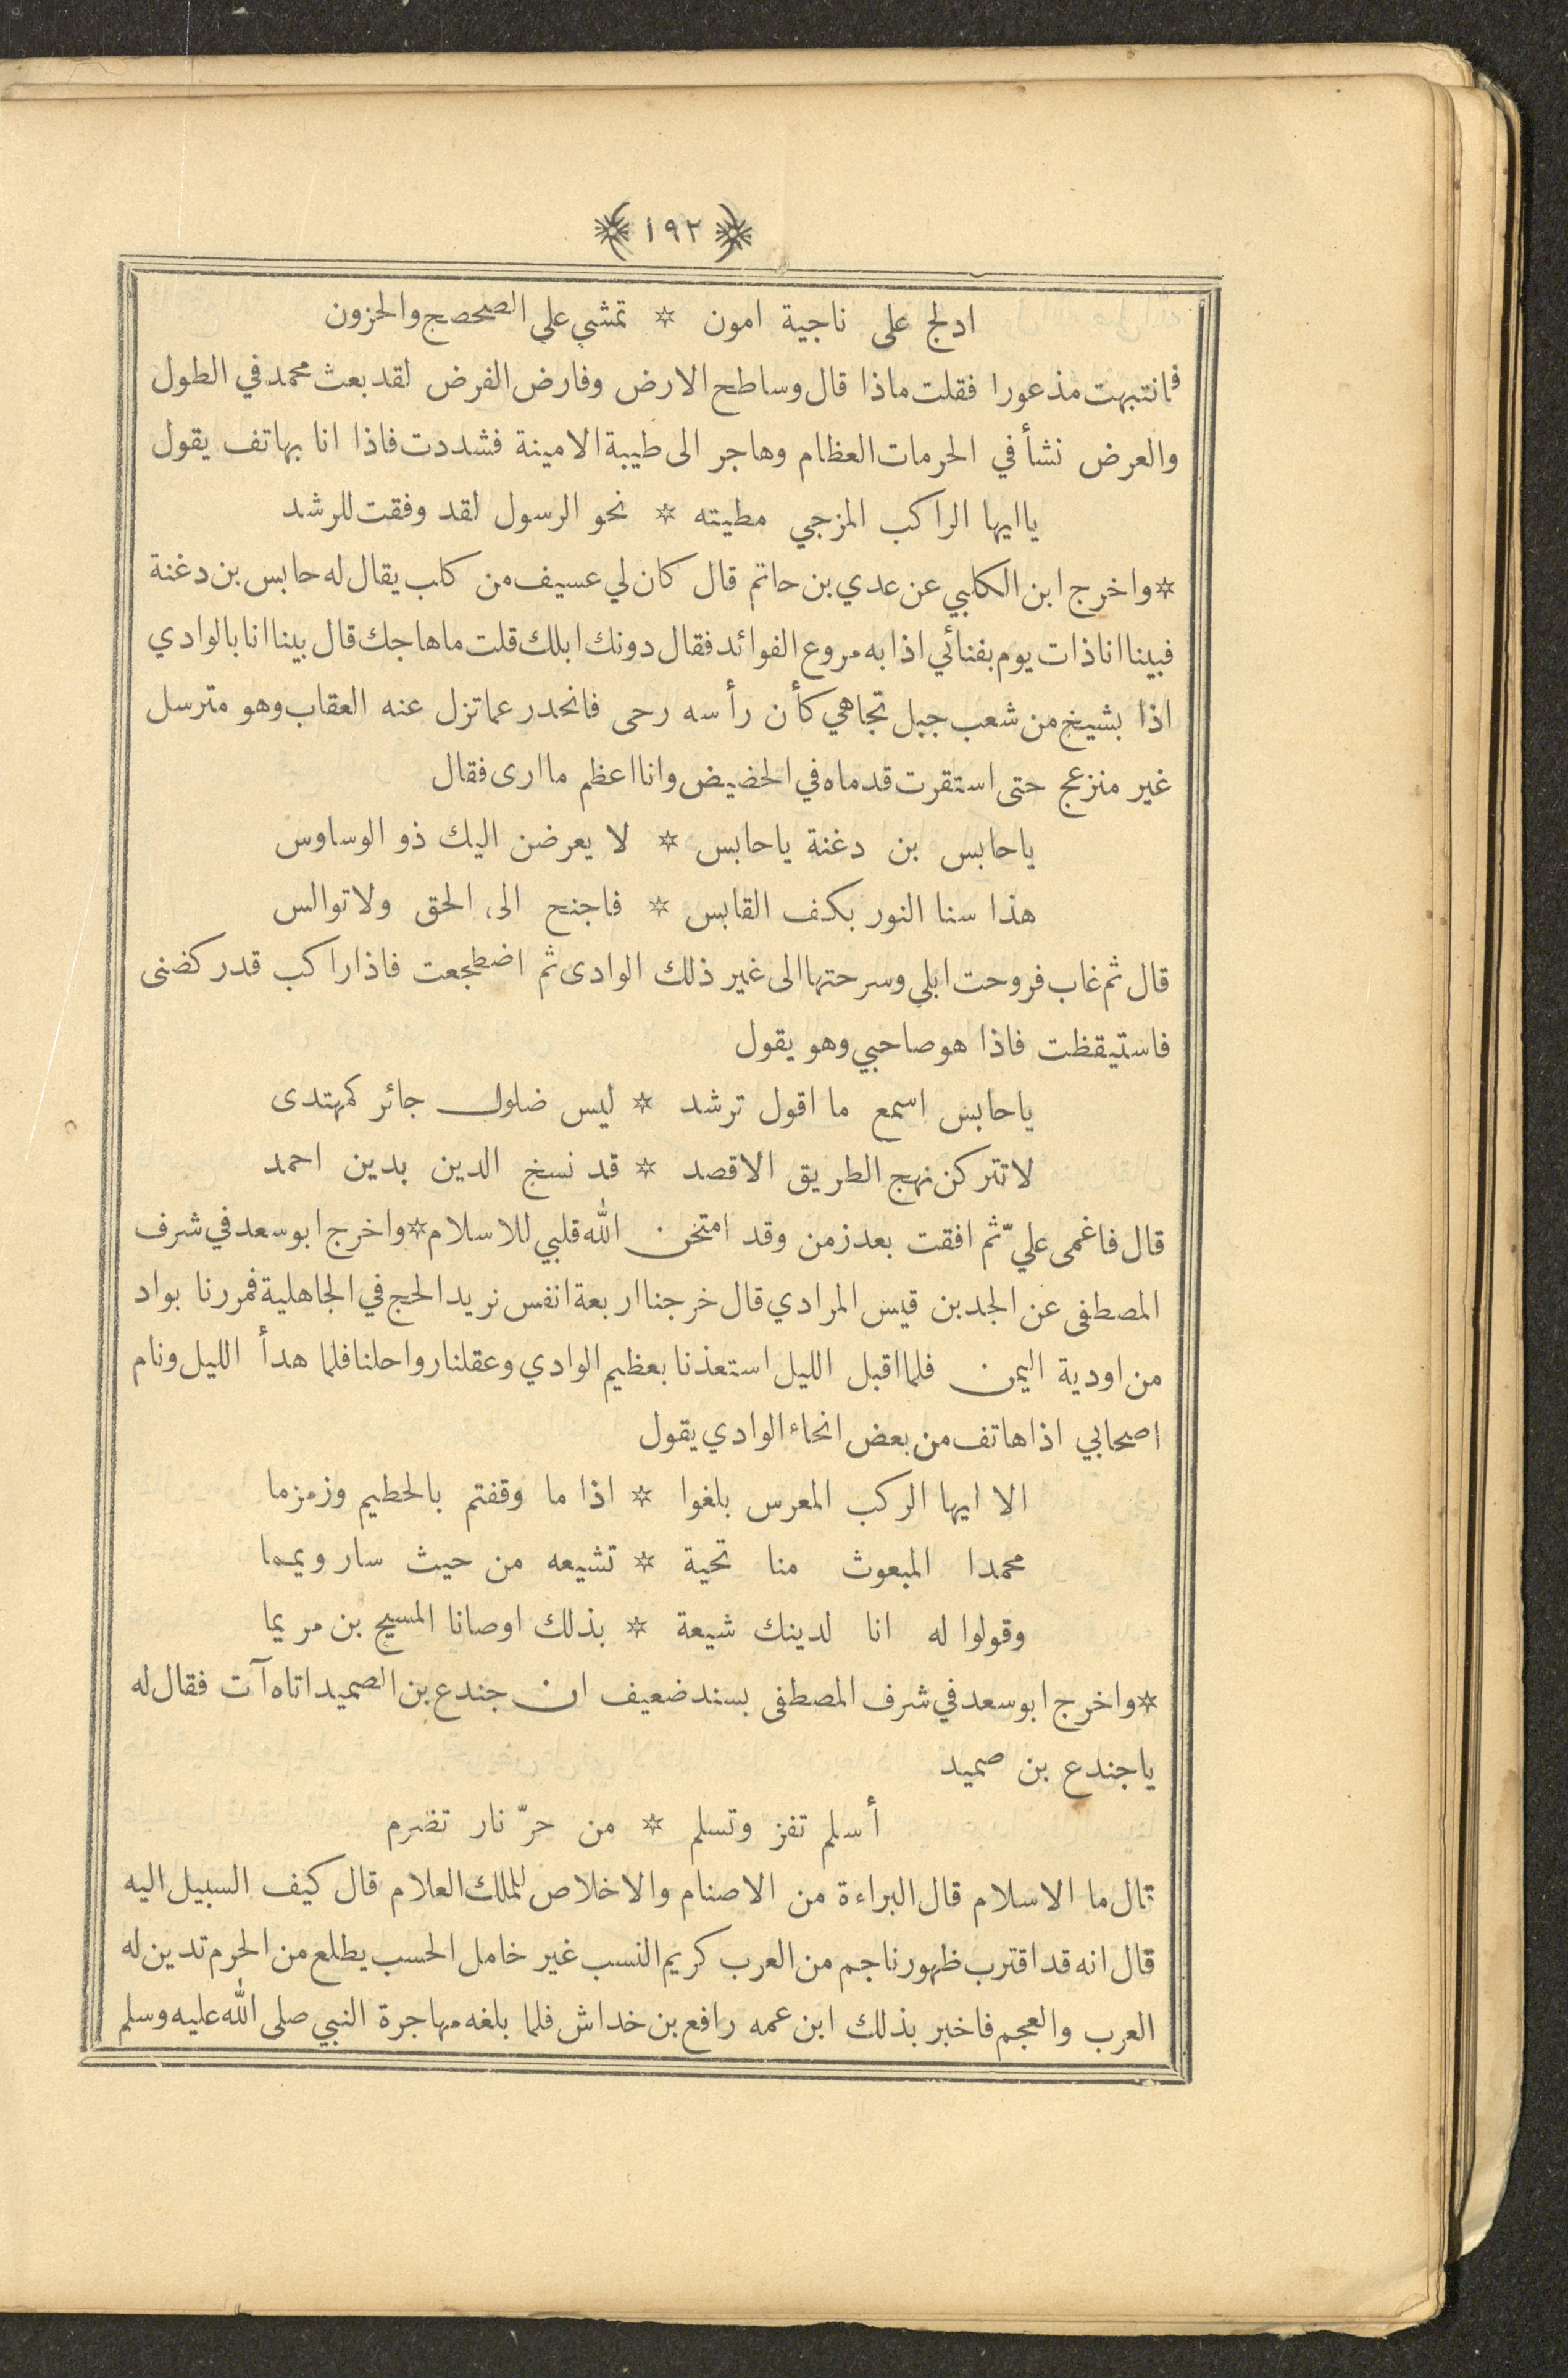 ﴿ ١٩٢ ﴾
ادلج على ناجية امون * تمشي على الصحصح والحزون
فانتبهت مذعورا فقلت ماذا قال وساطح الارض وفارض الفرض لقد بعث محمد في الطول
والعرض نشأ في الحرمات العظام وهاجر الى طيبة الامينة فشددت فاذا انا بهاتف يقول
ياايها الراكب المزجي مطيته * نحو الرسول لقد وفقت للرشد
* واخرج ابن الكلبي عن عدي بن حاتم قال كان لي عسيف من كلب يقال له حابس بن دغنة
فبينا انا ذات يوم بفنائي اذا به مروع الفوائد فقال دونك ابلك قلت ماهاجك قال بينا انا بالوادي
اذا بشيخ من شعب جبل تجاهي كأن رأسه رحى فانحدر عما تزل عنه العقاب وهو مترسل
غير منزعج حتى استقرت قدماه في الحضيض وانا اعظم ما ارى فقال
ياحابس بن دغنة ياحابس * لا يعرضن اليك ذو الوساوس
هذا سنا النور بكف القابس * فاجنح الى الحق ولا توالس
قال ثم غاب فروحت ابلي وسرحتها الى غير ذلك الوادى ثم اضطجعت فاذا راكب قد ركضنى
فاستيقظت فاذا هو صاحبي وهو يقول
ياحابس اسمع ما اقول ترشد * ليس ضلول جائر كمهتدى
لا تتركن نهج الطريق الاقصد * قد نسخ الدين بدين احمد
قال فاغمى عليّ ثم افقت بعد زمن وقد امتحن الله قلبي للاسلام * واخرج ابو سعد في شرف
المصطفى عن الجد بن قيس المرادي قال خرجنا اربعة انفس نريد الحج في الجاهلية فمررنا بواد
من اودية اليمن فلما اقبل الليل استعذنا بعظيم الوادي وعقلنا رواحلنا فلما هدأ الليل ونام
اصحابي اذا هاتف من بعض انحاء الوادي يقول
الا ايها الركب المعرس بلغوا * اذا ما وقفتم بالحطيم وزمزما
محمدا المبعوث منا تحية * تشيعه من حيث سار ويمما
وقولوا له انا لدينك شيعة * بذلك اوصانا المسيح بن مريما
* واخرج ابو سعد في شرف المصطفى بسند ضعيف ان جندع بن الصميد اتاه آت فقال له
ياجندع بن صميد
أسلم تفز وتسلم * من حرّ نار تضرم
قال ما الاسلام قال البراءة من الاصنام والاخلاص للملك العلام قال كيف السبيل اليه
قال انه قد اقترب ظهور ناجم من العرب كريم النسب غير خامل الحسب يطلع من الحرم تدين له
العرب والعجم فاخبر بذلك ابن عمه رافع بن خداش فلما بلغه مهاجرة النبي صلى الله عليه وسلم